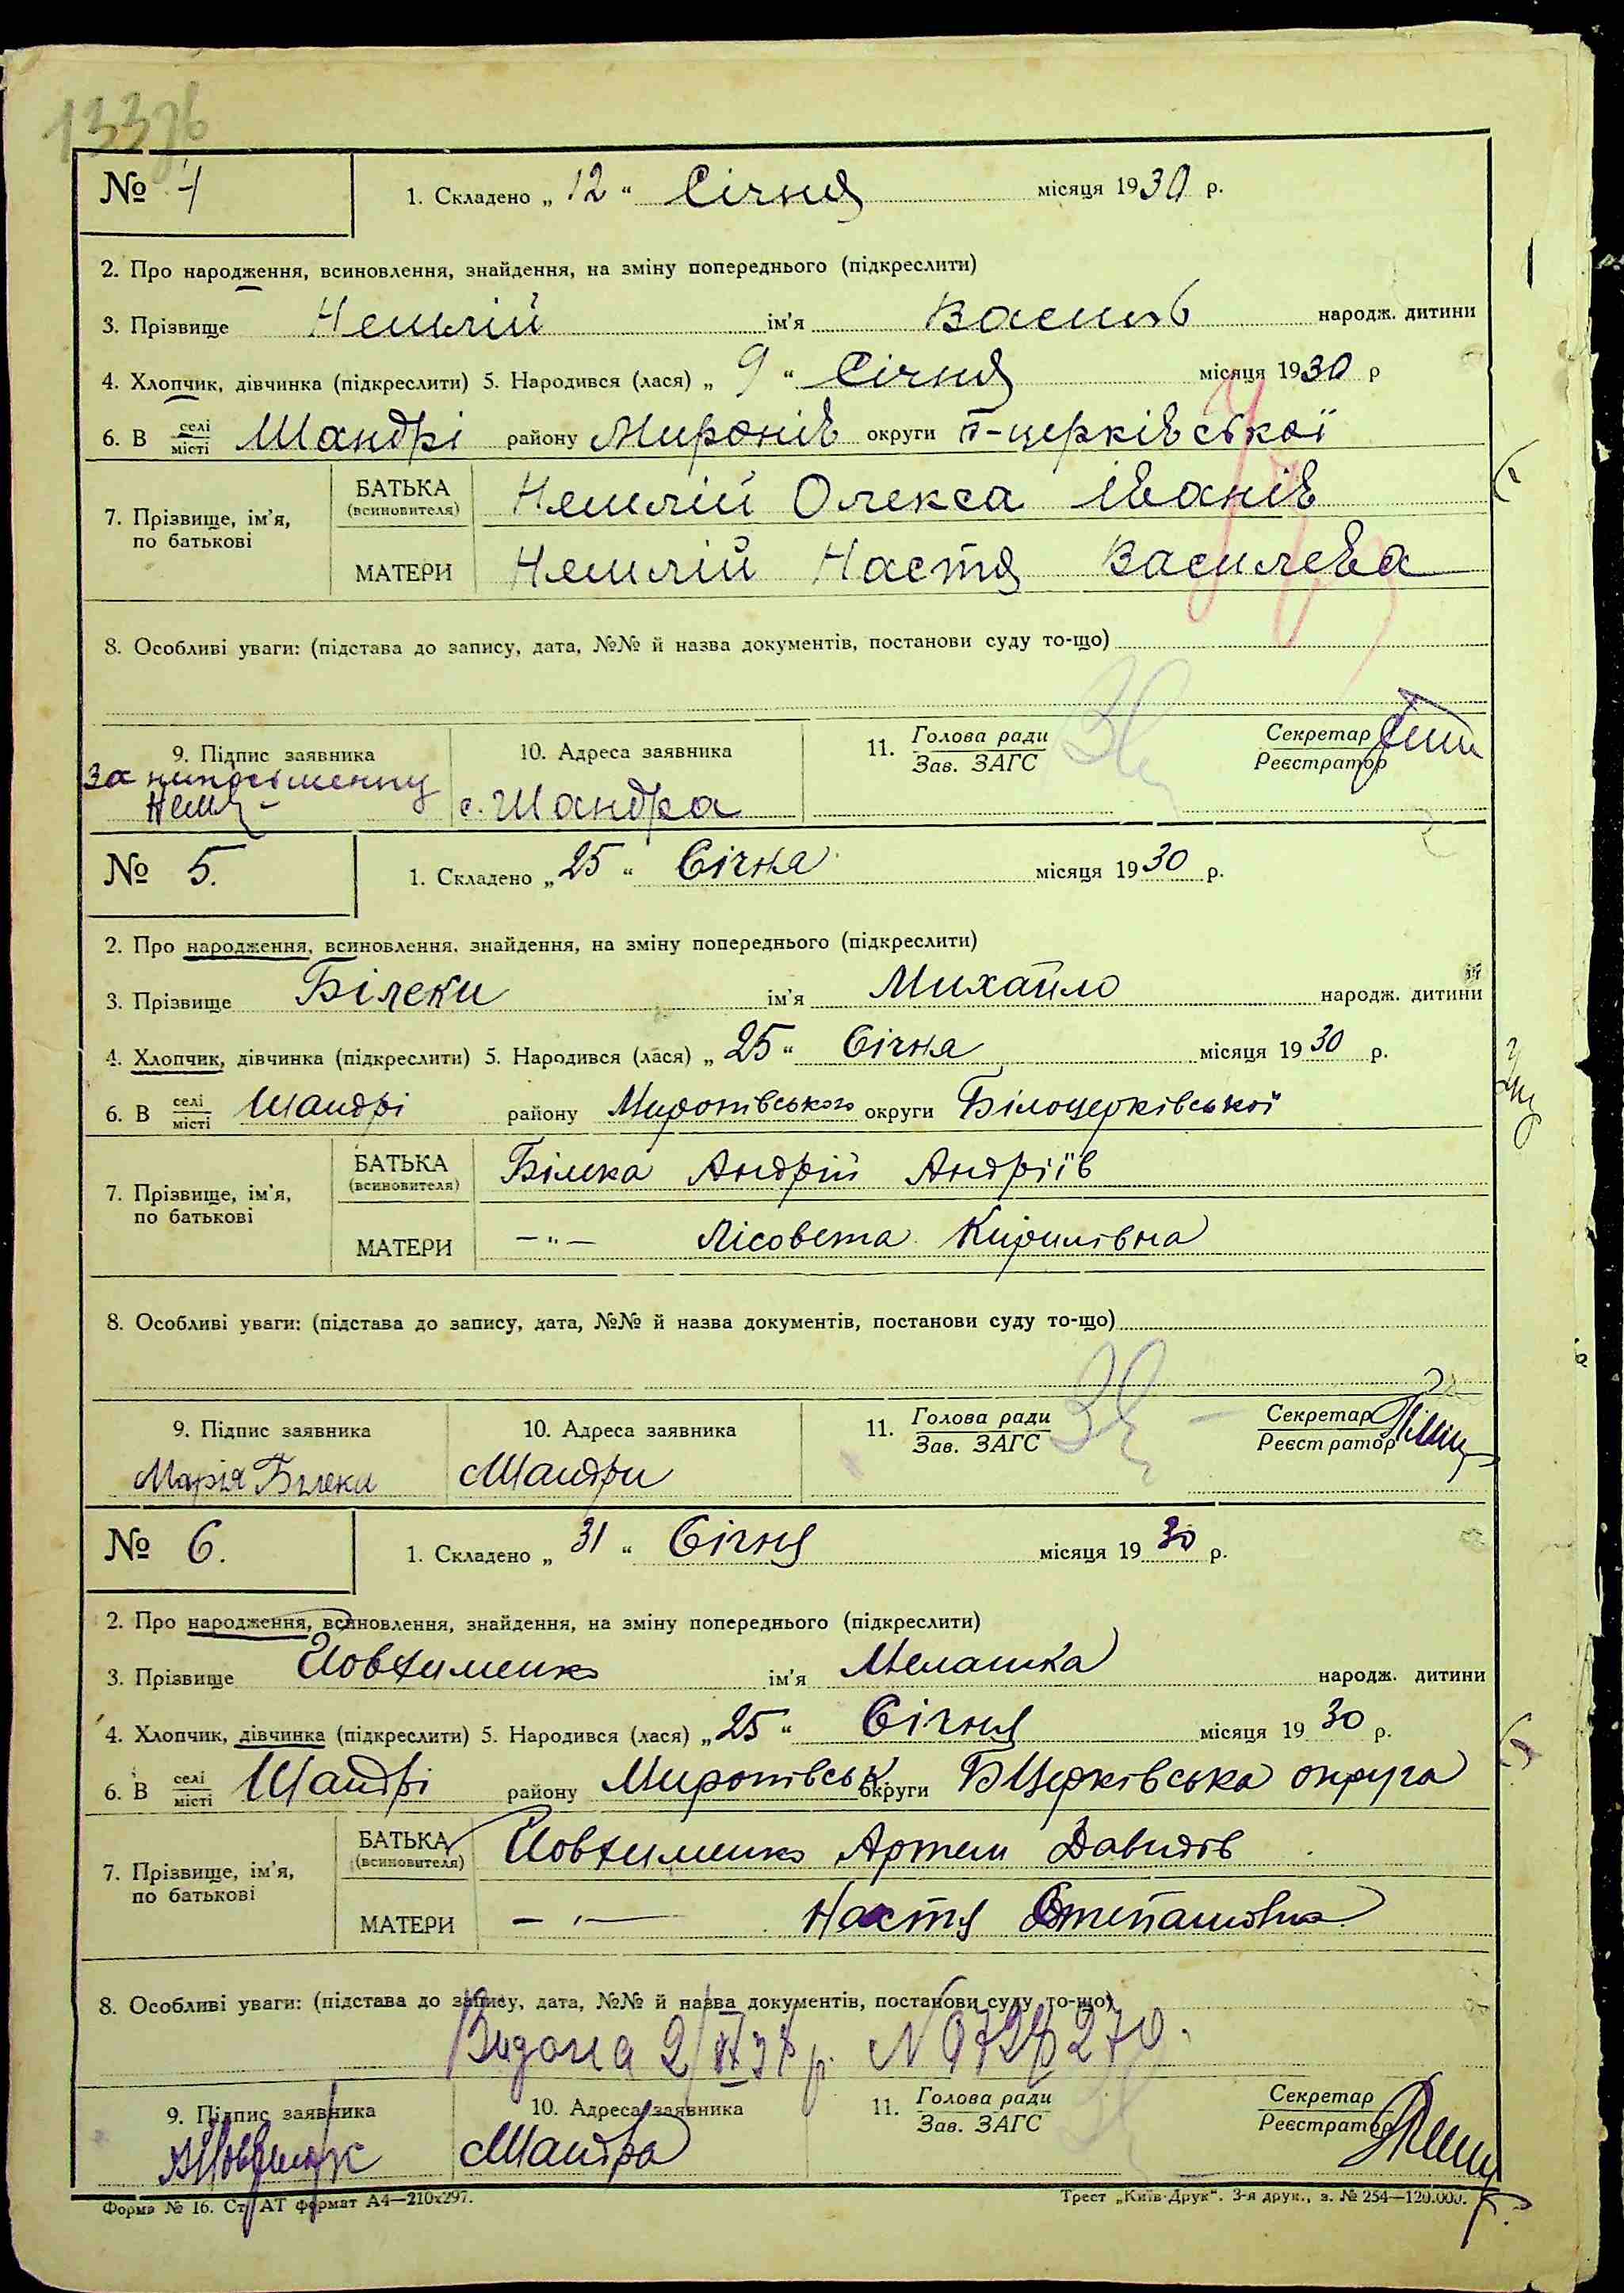 № 4
1. Складено „ 12 “ Січня місяця 1930 р.
2. Про народження, всиновлення, знайдення, на зміну попереднього (підкреслити)
3. Прізвище ім'я Василь народж. дитини
4. Хлопчик, дівчинка (підкреслити) 5. Народився (лася) „ 9 “ Січня місяця 1930 р
6. В селі місті Шандрі району Миронів округи Б-церківської
7. Прізвище, ім'я, по батькові
БАТЬКА (всиновителя) Олекса Іванів
МАТЕРИ Настя Василева
8. Особливі уваги: (підстава до запису, дата, №№ й назва документів, постанови суду то-що)
9. Підпис заявника
10. Адреса заявника
11. Голова ради Зав. ЗАГС
Секретар Реєстратор
За неписьменну
с. Шандра
№ 5.
1. Складено „ 25 “ Січня місяця 1930 р.
2. Про народження, всиновлення, знайдення, на зміну попереднього (підкреслити)
3. Прізвище Білеки ім'я Михайло народж. дитини
4. Хлопчик, дівчинка (підкреслити) 5. Народився (лася) „ 25 “ Січня місяця 1930 р.
6. В селі місті Шандрі району Миронівського округи Білоцерківської
7. Прізвище, ім'я, по батькові
БАТЬКА (всиновителя) Андрій Андріїв
МАТЕРИ -"- Лісовета Кирилівна
8. Особливі уваги: (підстава до запису, дата, №№ й назва документів, постанови суду то-що)
9. Підпис заявника
10. Адреса заявника
11. Голова ради Зав. ЗАГС
Секретар Реєстратор
Марія Білеки
Шандри
№ 6.
1. Складено „ 31 “ Січня місяця 1930 р.
2. Про народження, всиновлення, знайдення, на зміну попереднього (підкреслити)
3. Прізвище Йовхименко ім'я Мелашка народж. дитини
4. Хлопчик, дівчинка (підкреслити) 5. Народився (лася) „ 25 “ Січня місяця 1930 р.
6. В селі місті Шандрі району Миронівськ. округи БЦерківська округа
7. Прізвище, ім'я, по батькові
БАТЬКА (всиновителя) Йовхименко Артем Давидів
МАТЕРИ -"- Настя Степановна
8. Особливі уваги: (підстава до запису, дата, №№ й назва документів, постанови суду то-що)
Видана
9. Підпис заявника
10. Адреса заявника
11. Голова ради Зав. ЗАГС
Секретар Реєстратор
Шандра
Форма № 16. Ст. АТ формат А4—210x297.
Трест „Київ-Друк“. 3-я друк., з. № 254—120.000.